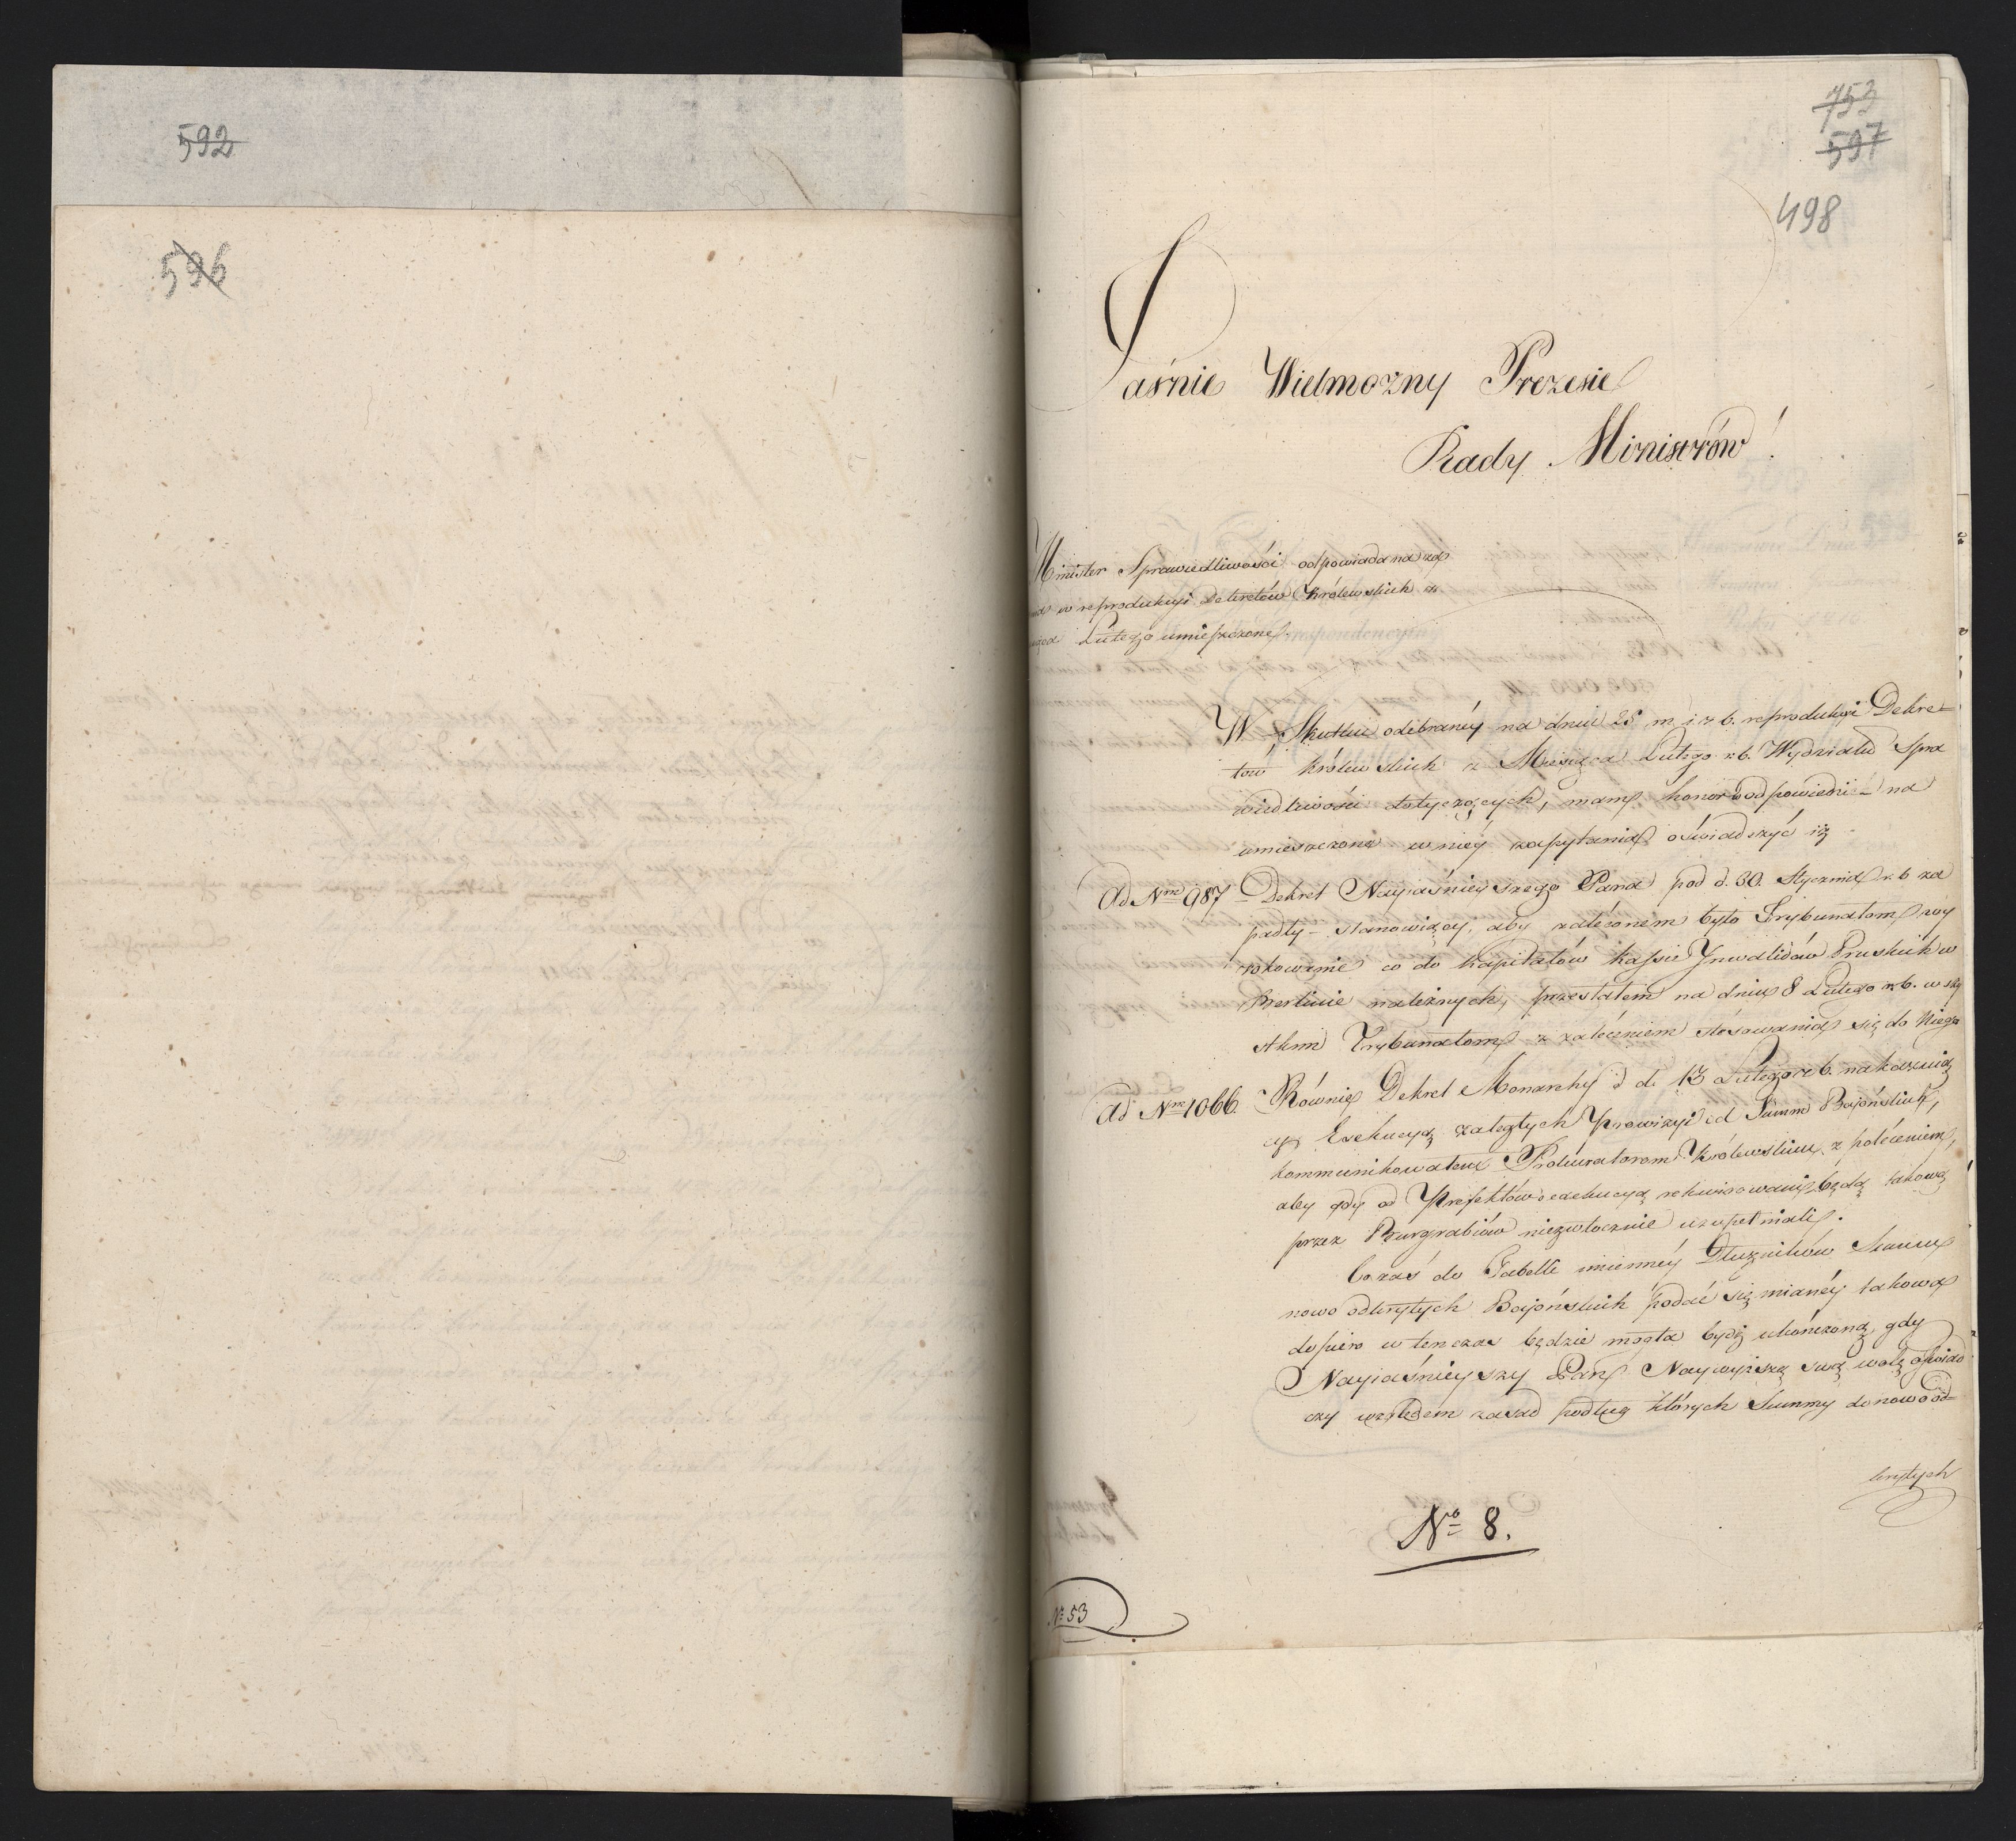 592
596
753
597
498
Jaśnie Wielmożny Prezesie
Rady Ministrów!
Minister Sprawiedliwości odpowiada na za
w reprodukcyi Dekretów Królewskich z
Lutego umieszczone.
W Skutku odebraney na dniu 28 m. i r. b. reprodukcyi Dekre-
tow królewskich z Miesiąca Lutego r. b. Wydziału Spra
wiedliwości dotyczących, mam honor odpowiednie na
umieszczone w niey zapytania oświadczyć iż
Ad Nrm 987 Dekret Nayiaśnieyszego Pana pod d. 30. Stycznia r. b. za
padły - stanowiący, aby zaleconem było Trybunałom wy
rokowanie co do kapitałów kassie Inwalidów Pruskich w
Berlinie należnych, przesłałem na dniu 8 Lutego r. b. wszy
stkim Trybunałom z zaleceniem stosowania się do niego
Ad Nrm 1066. Równie Dekret Monarchy d. d. 13 Lutego r. b. nakazuią
cy Exekucyą zaległych Prowizyi od Summ Bajońskich,
kommunikowałem Prokuratorom Królewskim z poleceniem,
aby gdy od Prefektów o exekucyą rekwirowani będą takową
przez Burgrabiów niezwłocznie uzupełniali.
Co zaś do Tabelli imienney Dłużników Summ
nowo odkrytych Bajońskich podać się mianey takowa
dopiero w tenczas będzie mogła bydź ukończoną, gdy
Nayiaśnieyszy Pan Naywyższą swą wolę oświad
czy względem zasad podług których Summy do nowo od-
krytych
No 8.
No 53